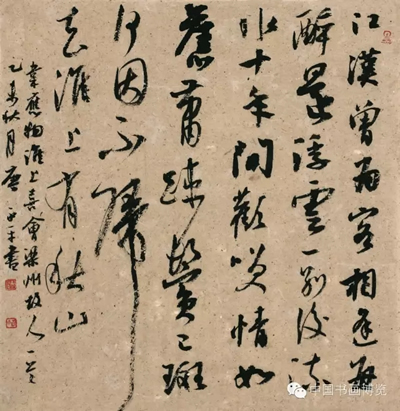 江漢曾為客相逢每
醉還浮雲一別後流
水十年間歡笑情如
舊蕭疏鬢已斑
何因不歸
去淮上有秋山
韋應物淮上喜會梁州故人一首
乙未秋月唐平書
中国书画博览